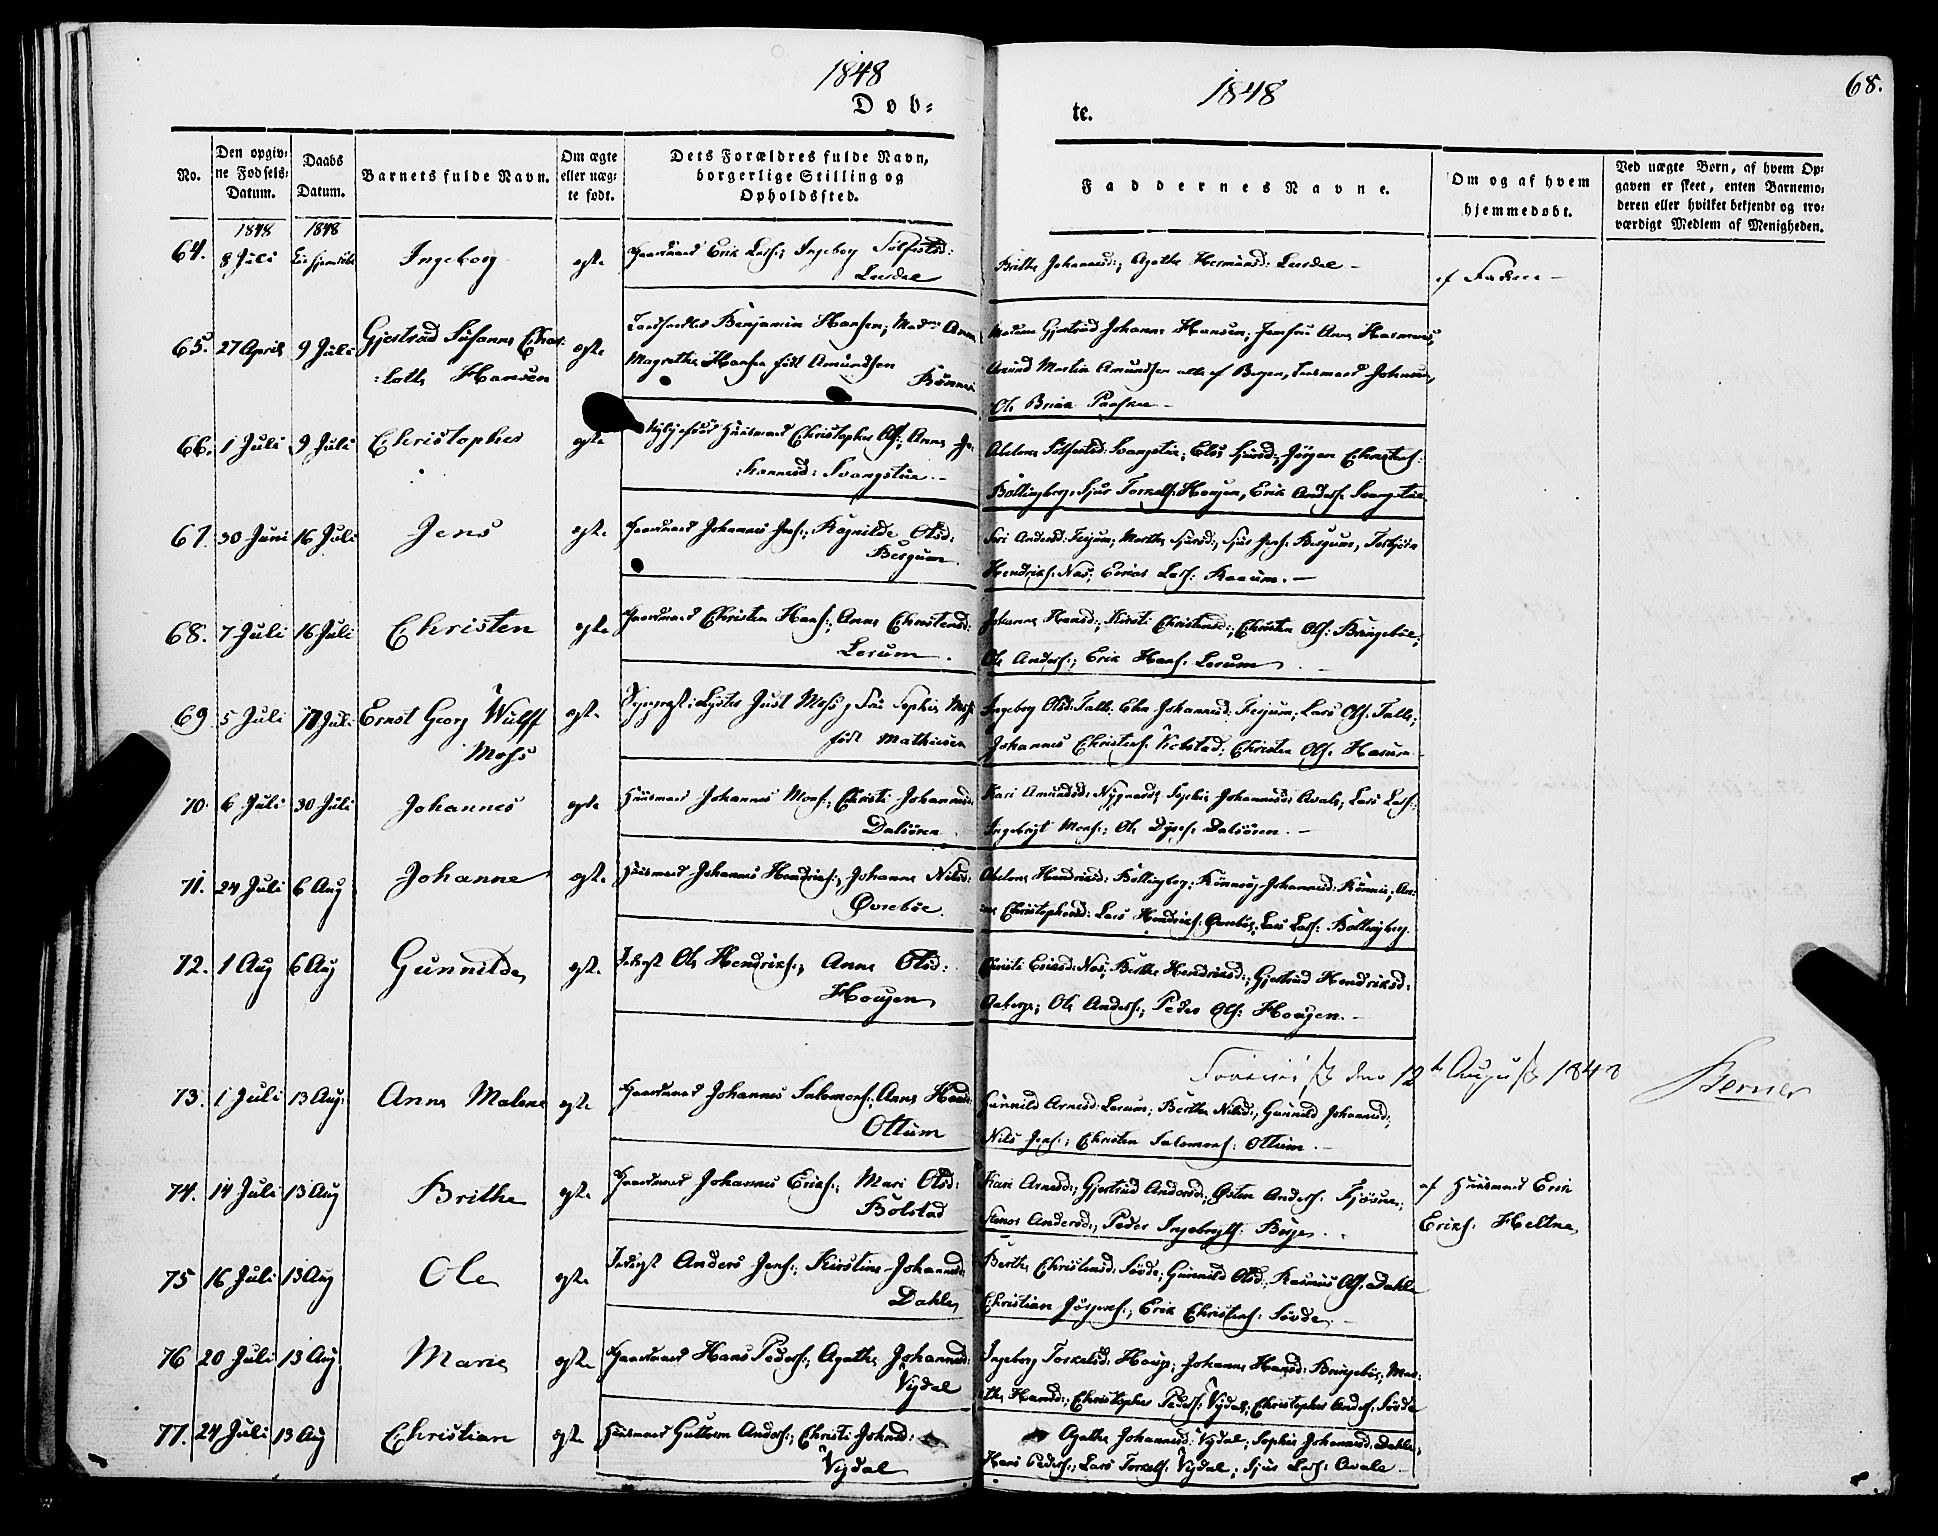 1848
Døb-
1848
te.
68.
No.
Den opgiv-
ne Fødsels-
Datum.
Daabs
Datum.
Barnets fulde Navn.
Om ægte
eller uæg-
te født.
Dets Forældres fulde Navn,
borgerlige Stilling og
Opholdssted.
Faddernes Navne.
Om og af hvem
hjemmedøbt.
Ved uægte Børn, af hvem Op-
gaven er skeet, enten Barnemo-
deren eller hvilket bekjendt og tro-
værdigt Medlem af Menigheden.
1848 1848
64. 8 Juli Ingeborg egte Gaardmand Erik Lass:, Ingeborg Tolfestsd:
Leerdal
Brithe Johannesd:, Agathe Hermundsd: Leerdal
af Faderen
65. 27 April 9 Juli Gjertrud Susanne Char-
:lotte Hansen
egte Landhandler Benjamin Hansen, Mad: Anne
Magrethe Hansen født Amundsen
Rønnei
Madame Gjertrud Johanne Hansen, Jomfru Anne
Amund Martin Amundsen alle af Bergen, Leensmand Johannes
Ole
66. 1 Juli 9 Juli Christopher egte Huusmand Christopher Ols:, Anne Jo-
:hannesd: Svangstue
Abelone Tolfestsd: Svangstue, Jørgen Christens:
Bollingberg, Sjur Torkels: Hougen, Erik Anders: Svangstue
67. 30 Juni 16 Juli Jens egte Gaardmand Johannes Jens:, Ragnilde Olsd:
Bergum
Andersd: Marthe Sjursd:, Sjur Jens: Bergum, Torbjørn
Hendriks: Næs, Lass: Kaarum.
68. 7 Juli 16 Juli Christen egte Gaardmand Christen Hans:, Anne Christensd:
Lerum
Johanne Hansd:, Kirsti Christensd:, Christen Ols: Bringebøe,
Ole Anders:, Erik Hans: Lerum
69 5 Juli 17 Juli Ernst Georg Wulff
Mohs
egte Just Mohs, Sophie
født Mathiesen
Ingeborg Olsd: Talle, Johannesd: Lars Ols: Talle,
Johannes Christens: Kobstad, Christen Ols:
70. 6 Juli 30 Juli Johannes egte Huusmand Johannes Mons:, Christi Johannesd:
Dalsøren
Kari Amundsd: Nygaard, Sophie Johannesd: Avale, Lars Lass:
Ingebrigt Mons:, Ole Dalsøren.
71. 24 Juli 6 Aug Johanne egte Huusmand Johannes Hendriks:, Johanne Nilsd:
Øvrebøe.
Abelone Hendriksd: Bollingberg, Johannesd: An-
:ne Christophersd: Lars Hendriks: Øvrebøe, Lars Lass: Bollingberg.
72. 1 Aug 6 Aug Gunnilde egte Ole Hendriks:, Anne Olsd:
Hougen
Christi Eriksd: Næs, Berthe Hendriksd:, Gjertrud Hendriksd:
Aaberge, Ole Anders:, Peder Ols: Hougen.
den 12te August 1848 Berner
73. 1 Juli 13 Aug: Anne Malene egte Gaardmand Johannes Salomons:, Anne
Ottum
Gunnild Arnesd: Lerum, Berthe Nilsd:, Gunnild Johannesd:
Nils Jens:, Christen Salomons: Ottum.
74. 14 Juli 13 Aug Brithe egte Gaardmand Johannes Eriks:, Mari Olsd:
Bolstad
Kari Arnesd:, Gjertrud Andersd:, Østen Anders:
Andersd:, Peder Ingebrigts: Børge.
af Huusmand Erik
Eriks: Heltne
75 16 Juli 13 Aug Ole egte Inderst Anders Jens:, Kirstine Johannesd:
Dahle
Berthe Christensd: Søvde, Gunnild Olsd:, Rasmus Ols: Dahle
Christian Jørgens:, Erik Christens: Søvde
76 20 Juli 13 Aug Marie egte Gaardmand Hans Peders:, Agathe Johannesd:
Vigdal
Ingeborg Torkelsd: Houge, Johanne Hansd: Bringebøe, Mar-
:the Hansd:, Christopher Peders: Vigdal, Christopher Anders: Søvde
77. 24 Juli 13 Aug Christian egte Huusmand Guttorm Anders:, Christi Johnsd:
Vigdal
Agathe Johannesd: Vigdal, Sophie Johannesd: Dahle,
Hans Peders:, Lars Torkels: Vigdal, Sjur Lass: Avale